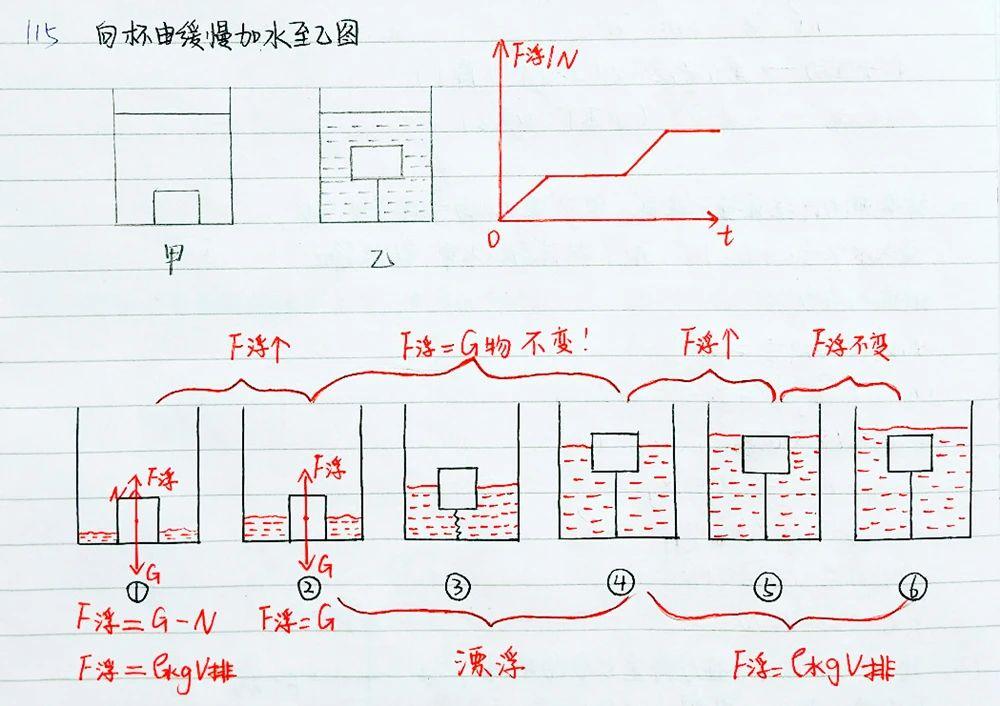 115 向杯中缓慢加水至乙图
F浮/N
0
t
甲
乙
F浮↑
F浮=G物 不变!
F浮↑
F浮不变
N
F浮
G
F浮
G
①
②
③
④
⑤
⑥
F浮=G-N
F浮=G
漂浮
F浮=ρ水gV排
F浮=ρ水gV排